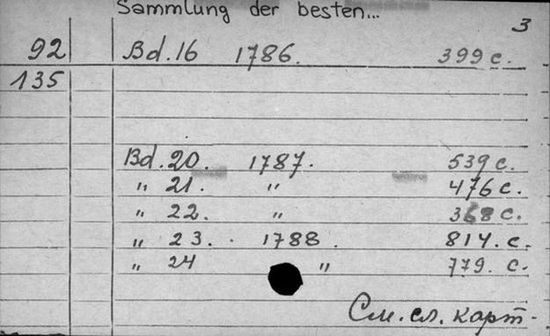 Sammlung der besten...
3
92 Bd. 16 1786. 399 с.
135
Bd. 20. 1787. 539 с.
„ 21. „ 476 с.
„ 22. „ 368 с.
„ 23. 1788. 814. с.
„ 24 „ 779. с.
См. сл. карт.